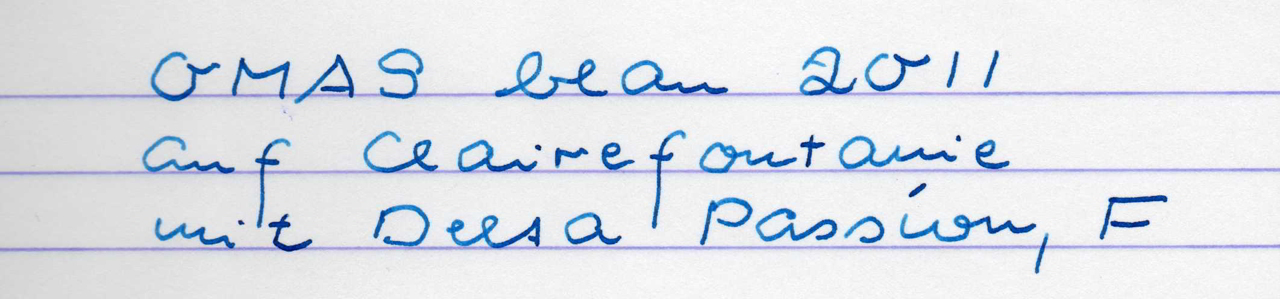 OMAS blau 2011
auf Clairefontaine
mit Delta Passion, F